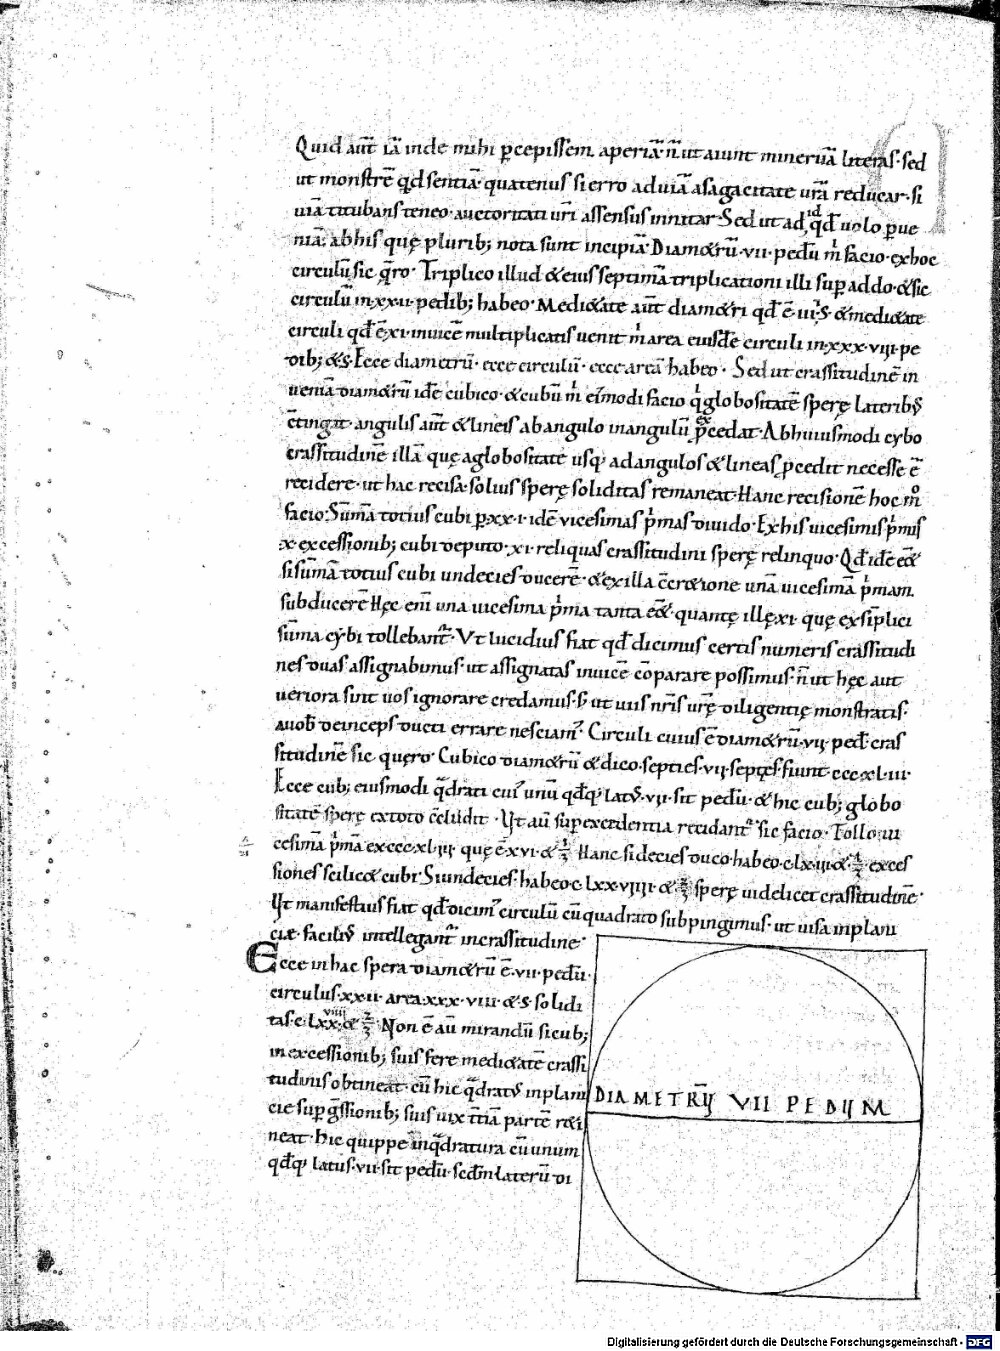 Quid aut̄ iā inde mihi ꝑcepissem aperiā. n̄ ut aiunt mineruā literas. sed
ut monstrē qd̄ sentiā. quatenus si erro ad uiā a sagacitate urā reducar. si
uiā titubans teneo. auctoritati urī assensus innitar. Sed ut ad id qd̄ uolo ꝑue
niā. ab his quę plurib; nota sunt incipiā. Diam&rū .vii. pedū m̄ facio. ex hoc
circulū sic q̄ro. Triplico illud & eius septimā triplicationi illi suꝑ addo. & sic
circulū in .xxii. pedib; habeo. Medi&ate aut̄ diam&ri qd̄ ē .iii. s. & medi&ate
circuli qd̄ ē .xi. inuicē multiplicatis uenit m̄ area eiusdē circuli in .xxx.viii. pe
dib; & s. Ecce diametrū. ecce circulū. ecce areā habeo. Sed ut crassitudinē in
ueniā diam&rū idē cubico. & cubū m̄ ei᷒modi facio q̄ globositatē sperę laterib᷒
c̄tingat. angulis aut̄ & lineis ab angulo in angulū p̄cedat. Ab huiusmodi cybo
crassitudinē illā quę a globositate usq; ad angulos & lineas ꝓcedit necesse ē
recidere. ut hac recisa. solius sperę soliditas remaneat. Hanc recisionē hoc m̊
facio. Sūmā totius cubi ꝑ .xx.i. idē vicesimas p̄mas diuido. Ex his uicesimis p̄mis
.x. excessionib; cubi deputo .xi. reliquas crassitudini sperę relinquo. Qd̄ idē e&
si sūmā totius cubi undecies ducerē. & ex illa c̄cr&ione unā uicesimā p̄mam
subducerē. Hęc enī una uicesima p̄ma tanta e& quantę illę .xi. quę ex simplici
sūma cybi tollebant᷒. Ut lucidius fiat qd̄ dicimus certis numeris crassitudi
nes duas assignabimus. ut assignatas inuicē cōparare possimus. n̄ ut hęc aut
ueriora sint uos ignorare credamus. s; ut uiis nr̄is urę diligentię monstratis.
a uob̄ deinceps ducti errare nesciam᷒. Circuli cuius ē diam&rū .vii. ped̄ cras
situdinē sic quęro. Cubico diam&rū & dico. septies .vii. septięs. fiunt .ccc.xl.iii.
Ecce cub; eiusmodi q̄drati cui᷒ unū qd̄q; lat᷒ .vii. sit pedū. & hic cub; globo
sitatē sperę ex toto c̄cludit. Ut aū suꝑexcedentia recidant᷒ sic facio. Tollo ui
cesimā p̄mā ex ccc.xl.iii. quę ē .xvi. & ⅓. Hanc si decies duco. habeo .c.lx.iii. & ⅓. exces
siones scilic& cubi. Si undecies. habeo .c.lxx.viiii. & ⅔ sperę uidelicet crassitudinē.
Ut manifestius fiat qd̄ dicim᷒ circulū cū quadrato subpingimus. ut uisa in plani
cie. facili᷒ intellegant᷒ in crassitudine.
Ecce in hac spera diam&rū ē .vii. pedū.
circulus .xxii. area .xxx.viii. & s. solidi
tas .c.lxx.viiii. & ⅔. Non ē aū mirandū si cub;
in excessionib; suis fere medi&atē crassi
tudinis obtineat. cū hic q̄drat᷒ in plani
cie suꝑgr̄ssionib; suis uix tciā partē r&i
neat. Hic quippe in q̄dratura cū unum
qd̄q; latus .vii. sit pedū. sedm laterū di
DIAMETRŪ VII PEDUM
Digitalisierung gefördert durch die Deutsche Forschungsgemeinschaft - DFG